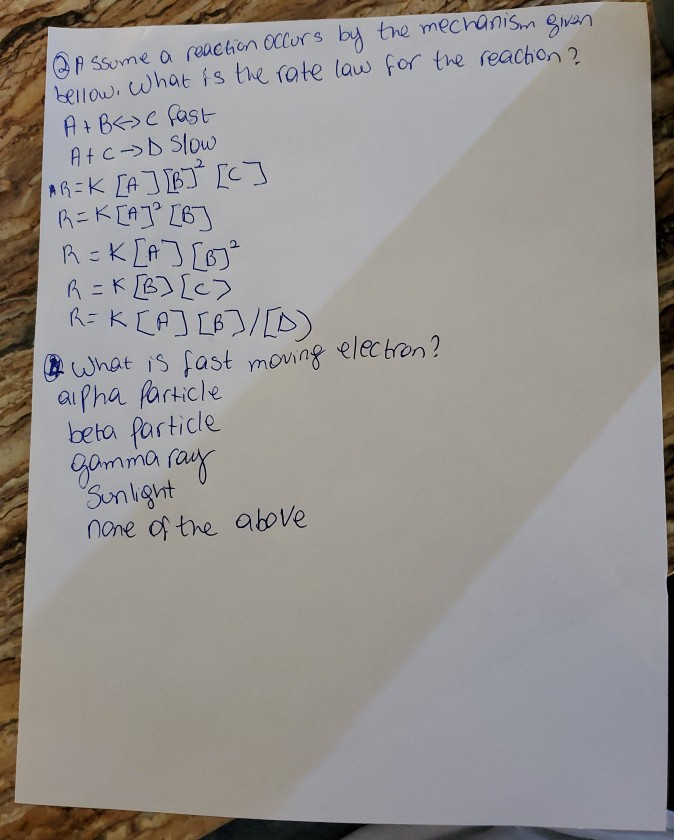 ② Assume a reaction occurs by the mechanism given
bellow. What is the rate law for the reaction?
A + B <-> C fast
A + C -> D Slow
R = K [A] [B]² [C]
R = K [A]² [B]
R = K [A] [B]²
R = K [B] [C]
R = K [A] [B] / [D)
What is fast moving electron?
alpha particle
beta particle
gamma ray
Sunlight
none of the above